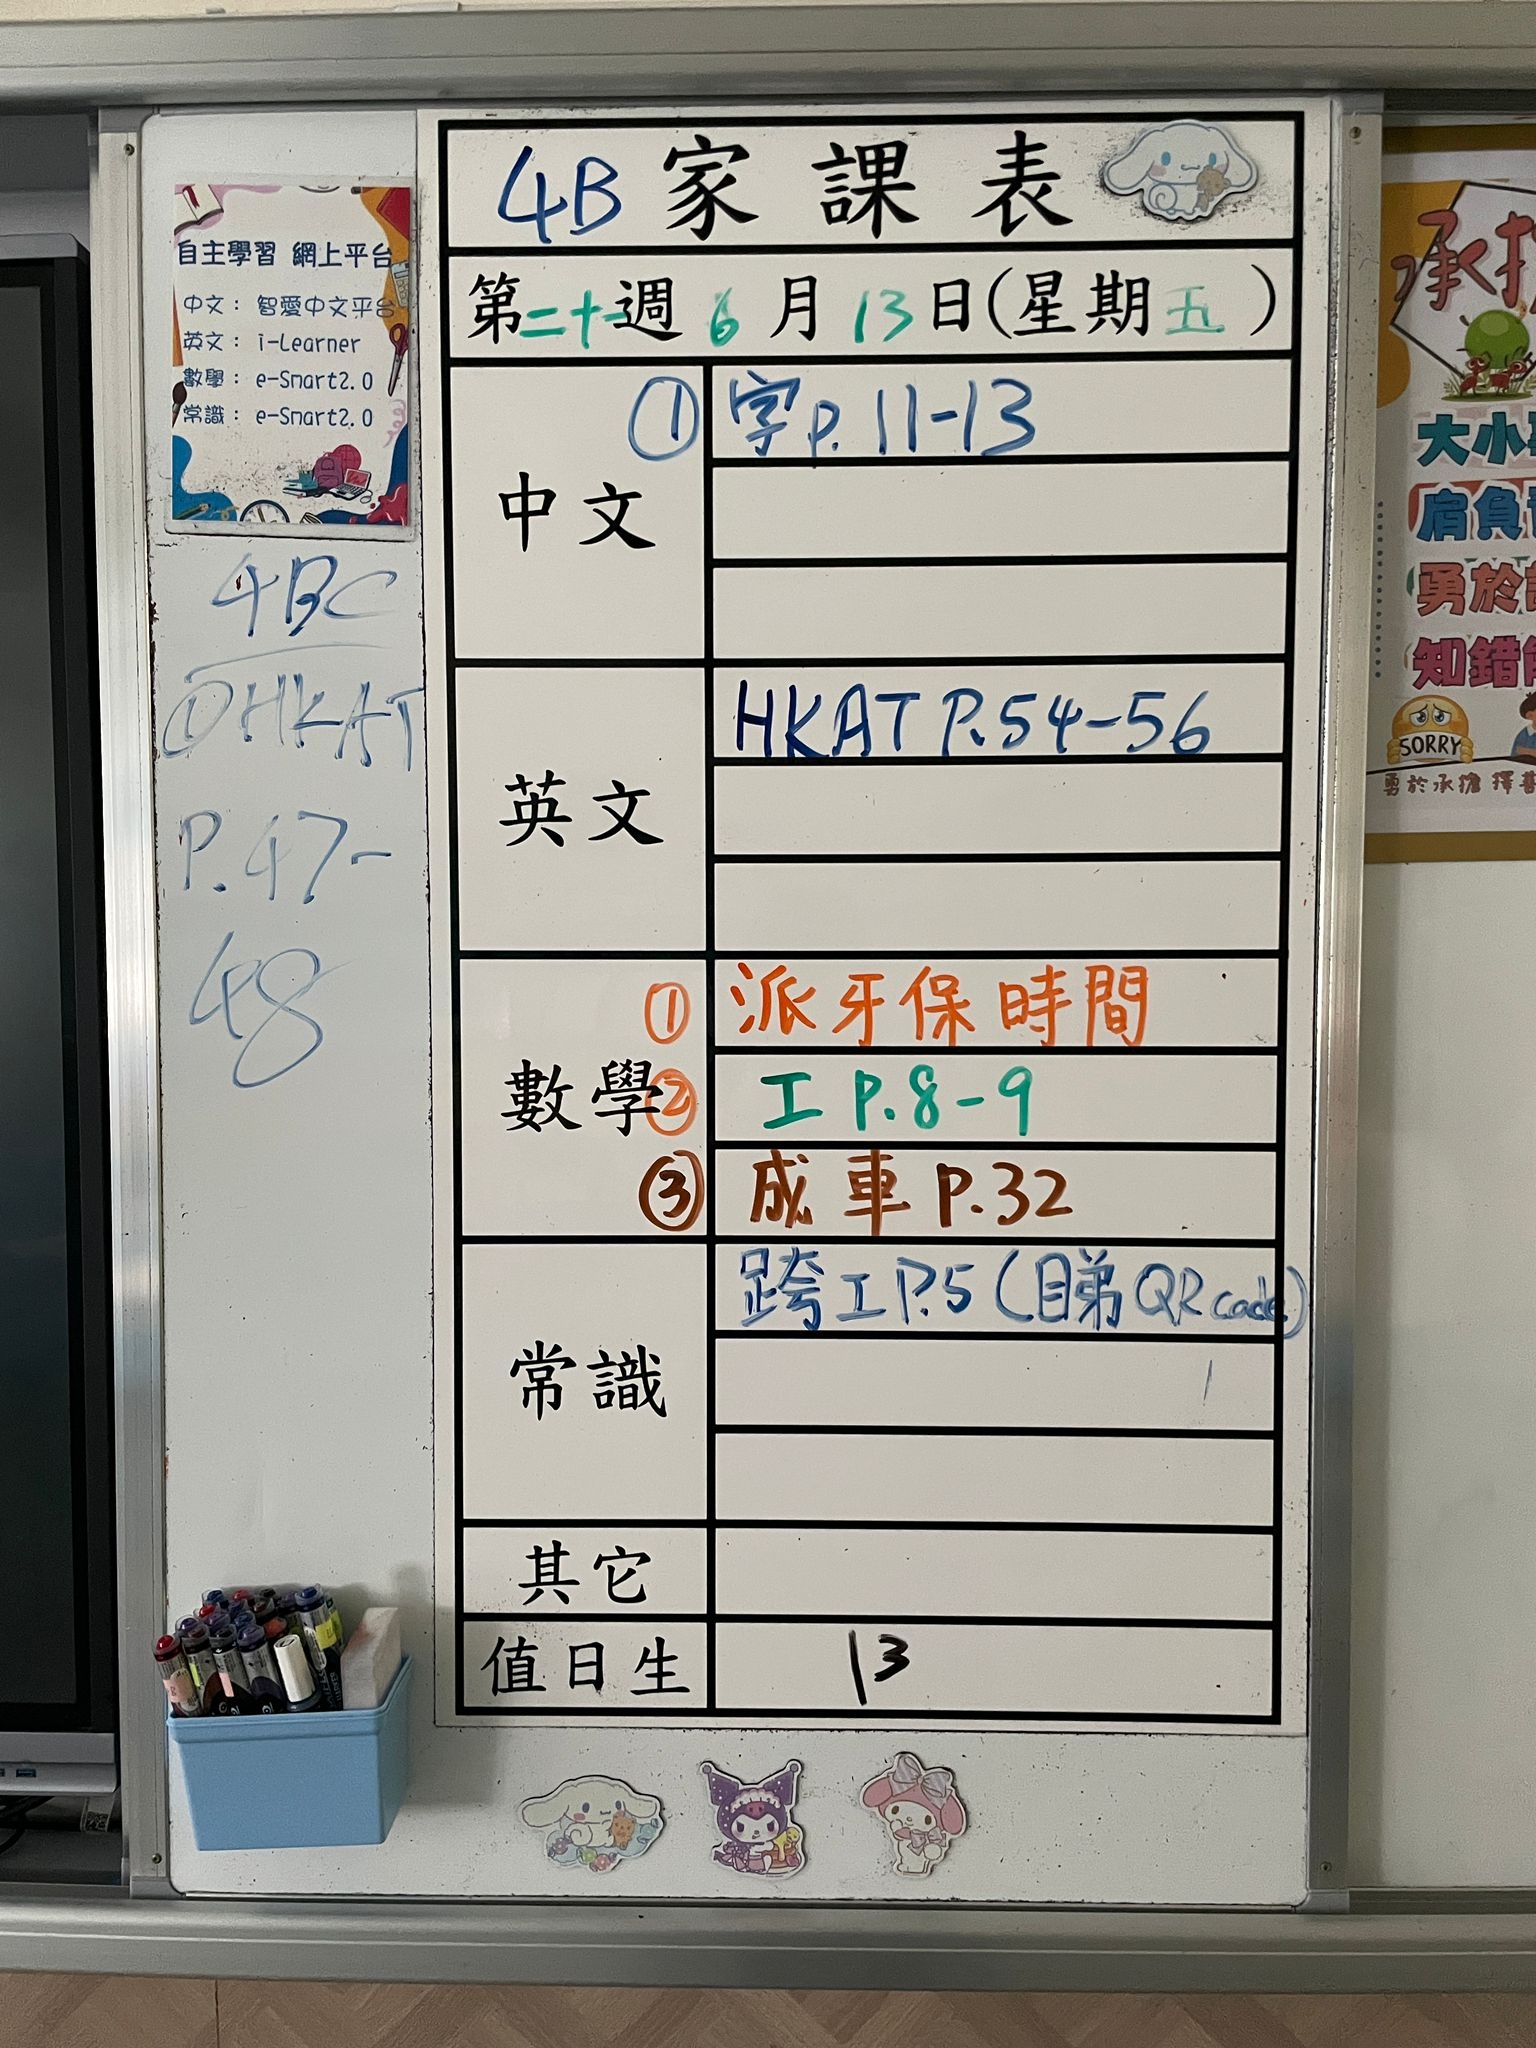 4B 家課表
第二十一週 6月13日(星期五)
中文
① 字p.11-13
英文
HKAT P.54-56
數學
① 派牙保時間
② 工 P.8-9
③ 成車 P.32
常識
跨工P.5(睇QR code)
其它
值日生 13
自主學習 網上平台
中文： 智愛中文平台
英文： i-Learner
數學： e-Smart2.0
常識： e-Smart2.0
4BC
①HKAT
P.47-
48
承擔
大小
肩負
勇於
知錯
SORRY
勇於承擔 擇善